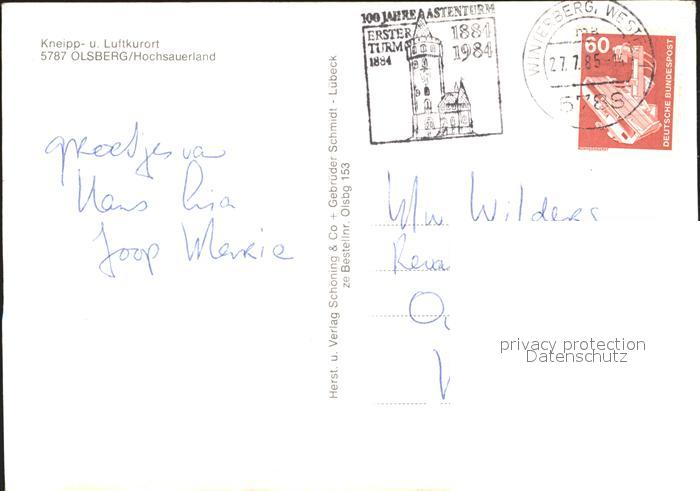 Kneipp- u. Luftkurort
5787 OLSBERG/Hochsauerland
groetjes van
Hans Lisa
Joop Marrie
Herst. u. Verlag Schöning & Co + Gebrüder Schmidt - Lübeck
ze Bestellnr. Olsbg 153
100 JAHRE ASTENTURM
ERSTER TURM 1884
1884
1984
WINTERBERG, WESTF
27.7.85
5788
60
DEUTSCHE BUNDESPOST
Wilders
privacy protection
Datenschutz